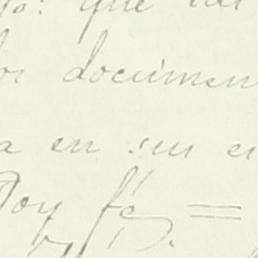 que
documen
a en su e
Doy fé, =